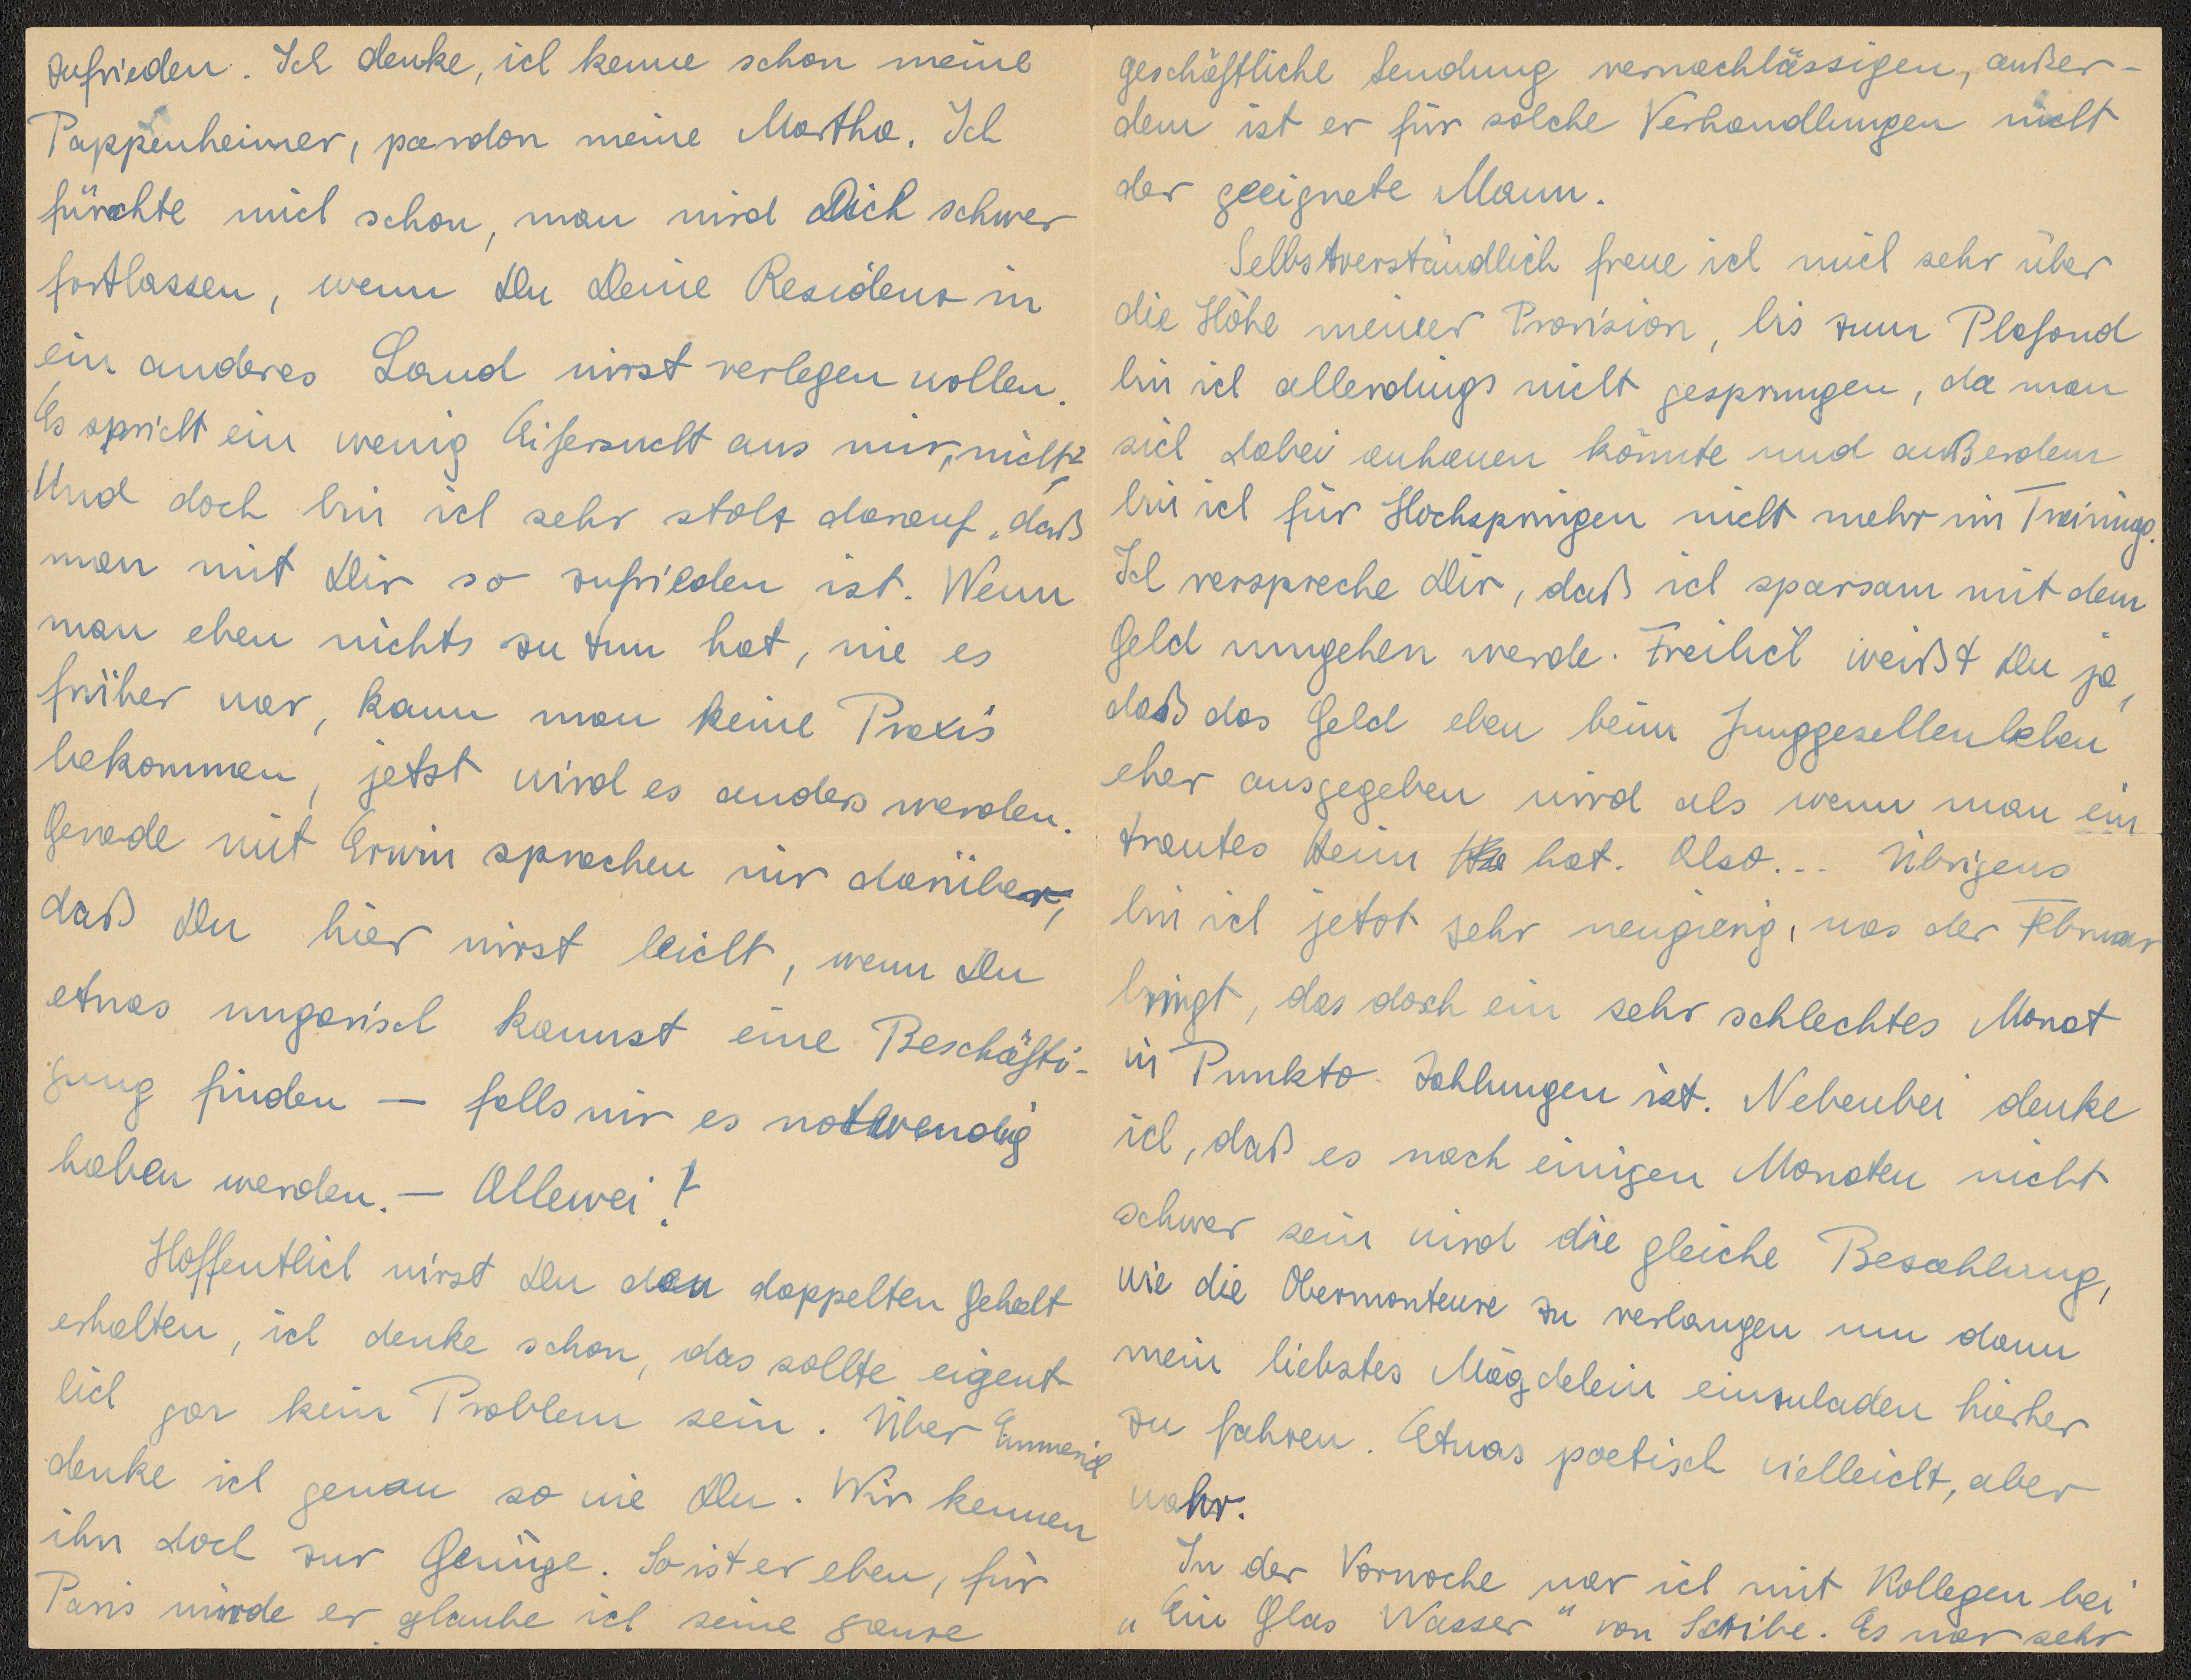 zufrieden. Ich denke, ich kenne schon meine
Pappenheimer, pardon meine Martha. Ich
fürchte mich schon, man wird Dich schwer
fortlassen, wenn Du Deine Residenz in
ein anderes Land wirst verlegen wollen.
Es spricht ein wenig Eifersucht aus mir, nicht?
Und doch bin ich sehr stolz darauf, daß
man mit Dir so zufrieden ist. Wenn
man eben nichts zu tun hat, wie es
früher war, kann man keine Praxis
bekommen, jetzt wird es anders werden.
Gerade mit Erwin sprachen wir darüber,
daß Du hier wirst leicht, wenn Du
etwas ungarisch kannst eine Beschäfti-
gung finden — falls wir es notwendig
haben werden. — Allewei!
Hoffentlich wirst Du den doppelten Gehalt
erhalten, ich denke schon, das sollte eigent-
lich gar kein Problem sein. Über Emmerich
denke ich genau so wie Du. Wir kennen
ihn doch zur Genüge. So ist er eben, für
Paris würde er glaube ich seine ganze
geschäftliche Sendung vernachlässigen, außer-
dem ist er für solche Verhandlungen nicht
der geeignete Mann.
Selbstverständlich freue ich mich sehr über
die Höhe meiner Provision, bis zum Plafond
bin ich allerdings nicht gesprungen, da man
sich dabei anhauen könnte und außerdem
bin ich für Hochspringen nicht mehr im Training.
Ich verspreche Dir, daß ich sparsam mit dem
Geld umgehen werde. Freilich weißt Du ja,
daß das Geld eben beim Junggesellenleben
eher ausgegeben wird als wenn man ein
trautes Heim hat. Also... Übrigens
bin ich jetzt sehr neugierig, was der Februar
bringt, das doch ein sehr schlechtes Monat
in Punkto Zahlungen ist. Nebenbei denke
ich, daß es nach einigen Monaten nicht
schwer sein wird die gleiche Bezahlung,
wie die Obermonteure zu verlangen um dann
mein liebstes Mägdelein einzuladen hierher
zu fahren. Etwas poetisch vielleicht, aber
wahr.
In der Vorwoche war ich mit Kollegen bei
„Ein Glas Wasser" von Scribe. Es war sehr